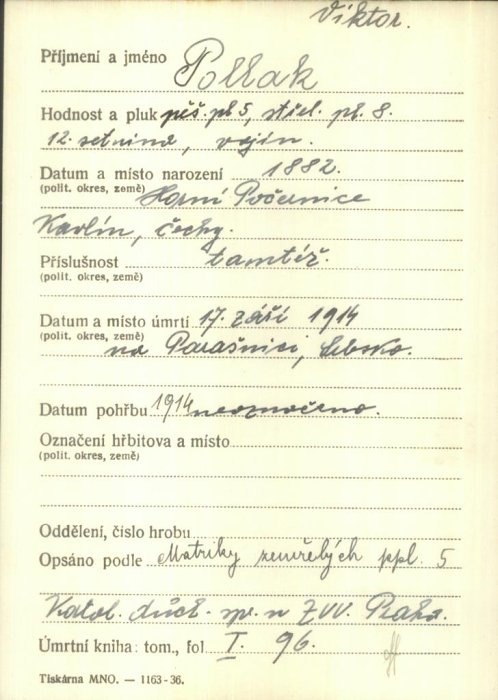 Viktor.
Příjmení a jméno Pollak
Hodnost a pluk pěš. pl 5, střel. pl. 8.
12. setnina, vojín.
Datum a místo narození 1882.
(polit. okres, země) Horní Počernice
Karlín, Čechy.
Příslušnost tamtéž.
(polit. okres, země)
Datum a místo úmrtí 17. září 1914
(polit. okres, země) na Parašnici, Srbsko.
Datum pohřbu 1914 neoznačeno.
Označení hřbitova a místo
(polit. okres, země)
Oddělení, číslo hrobu
Opsáno podle Matriky zemřelých ppl. 5
Katol. duch. spr. u ZVV. Praha.
Úmrtní kniha: tom., fol I. 96.
Tiskárna MNO. — 1163-36.